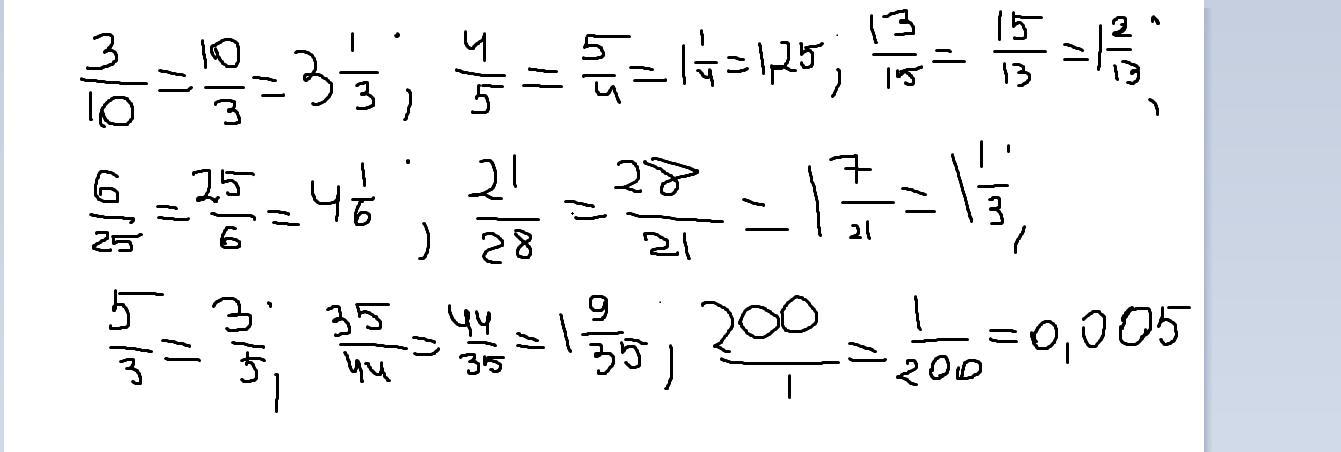 3/10 = 10/3 = 3 1/3; 4/5 = 5/4 = 1 1/4 = 1,25; 13/15 = 15/13 = 1 2/13;
6/25 = 25/6 = 4 1/6; 21/28 = 28/21 = 1 7/21 = 1 1/3;
5/3 = 3/5; 35/44 = 44/35 = 1 9/35; 200/1 = 1/200 = 0,005